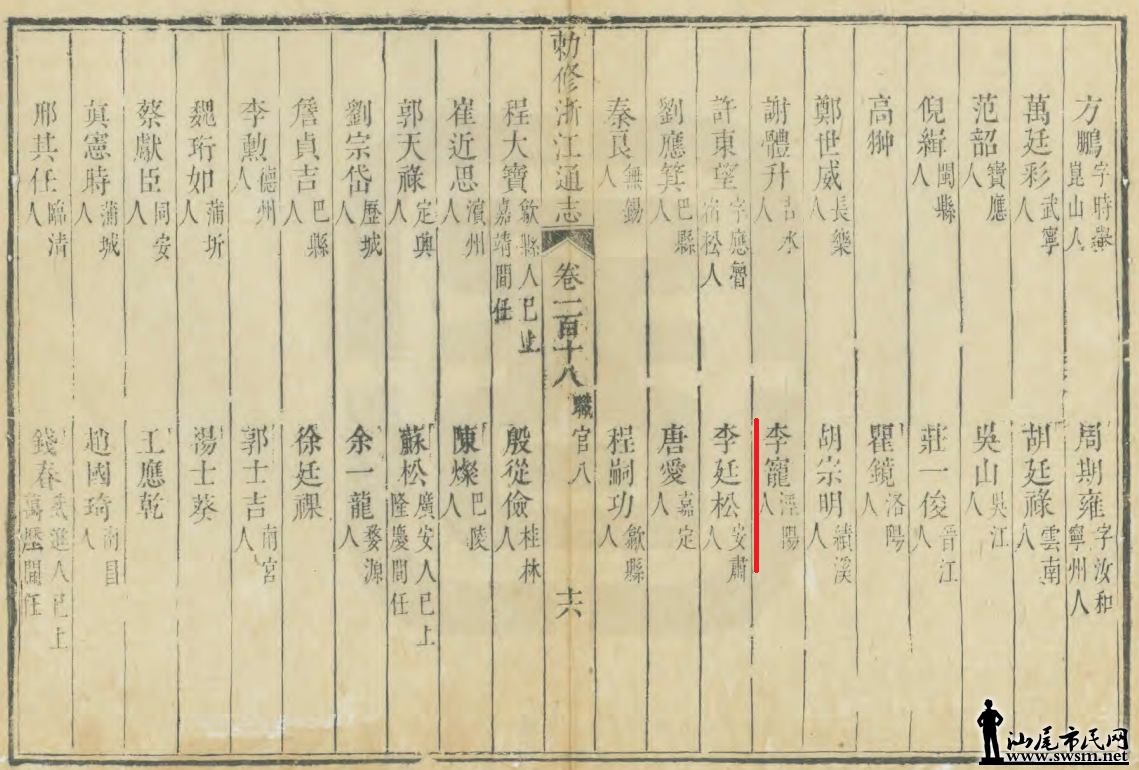 方鵬字時舉崑山人
周期雍字汝和寧州人
萬廷彩武寧人
胡廷祿雲南人
范韶寶應人
吳山吳江人
倪緝閩縣人
莊一俊晉江人
高翀
瞿鏡洛陽人
鄭世威長樂人
胡宗明績溪人
謝體升吉水人
李寵涇陽人
許東望字應魯宿松人
李廷松安肅人
劉應箕巴縣人
唐愛嘉定人
秦良無錫人
程嗣功歙縣人
勅修浙江通志
卷一百十八
職官八
十六
程大寶歙縣人已上嘉靖間任
殷從儉桂林人
崔近思濱州人
陳燦巴陵人
郭天祿定興人
蘇松廣安人已上隆慶間任
劉宗岱歷城人
余一龍婺源人
詹貞吉巴縣人
徐廷祼
李勲德州人
郭士吉南宮人
魏珩如蒲圻人
湯士葵
蔡獻臣同安人
王應乾
真憲時蒲城人
趙國琦南昌人
邢其任臨清人
錢春武進人已上萬歷間任
汕尾市民网
www.swsm.net